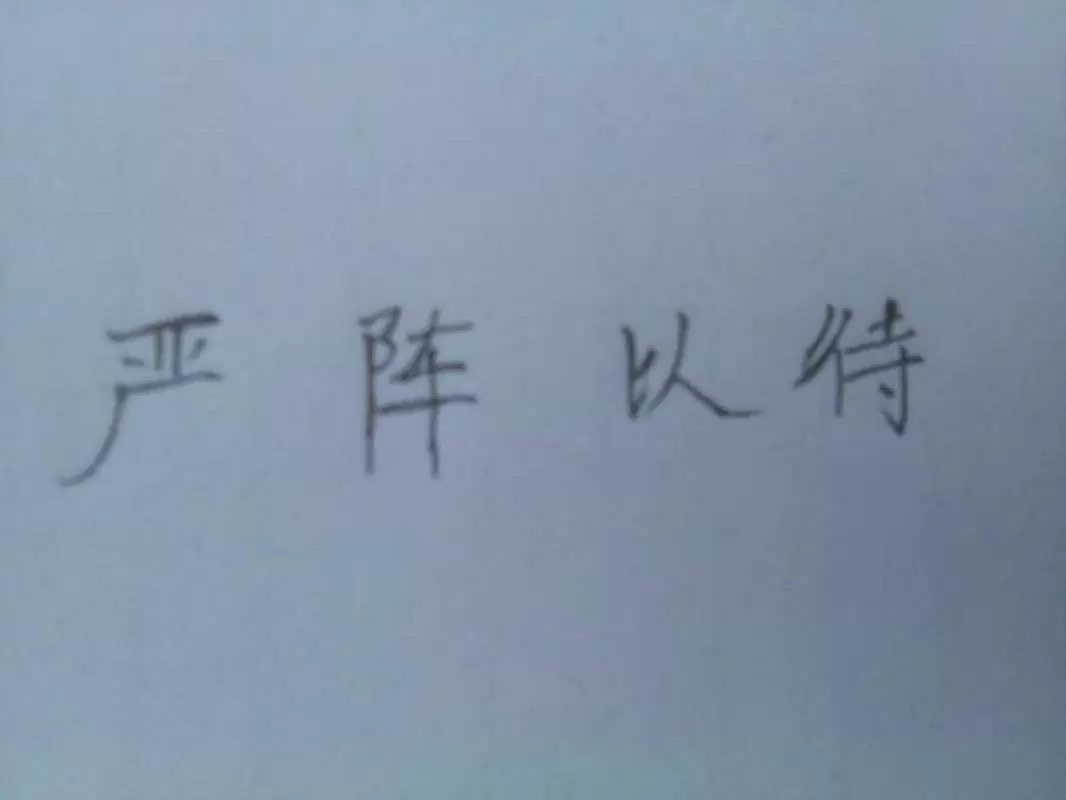 严阵以待